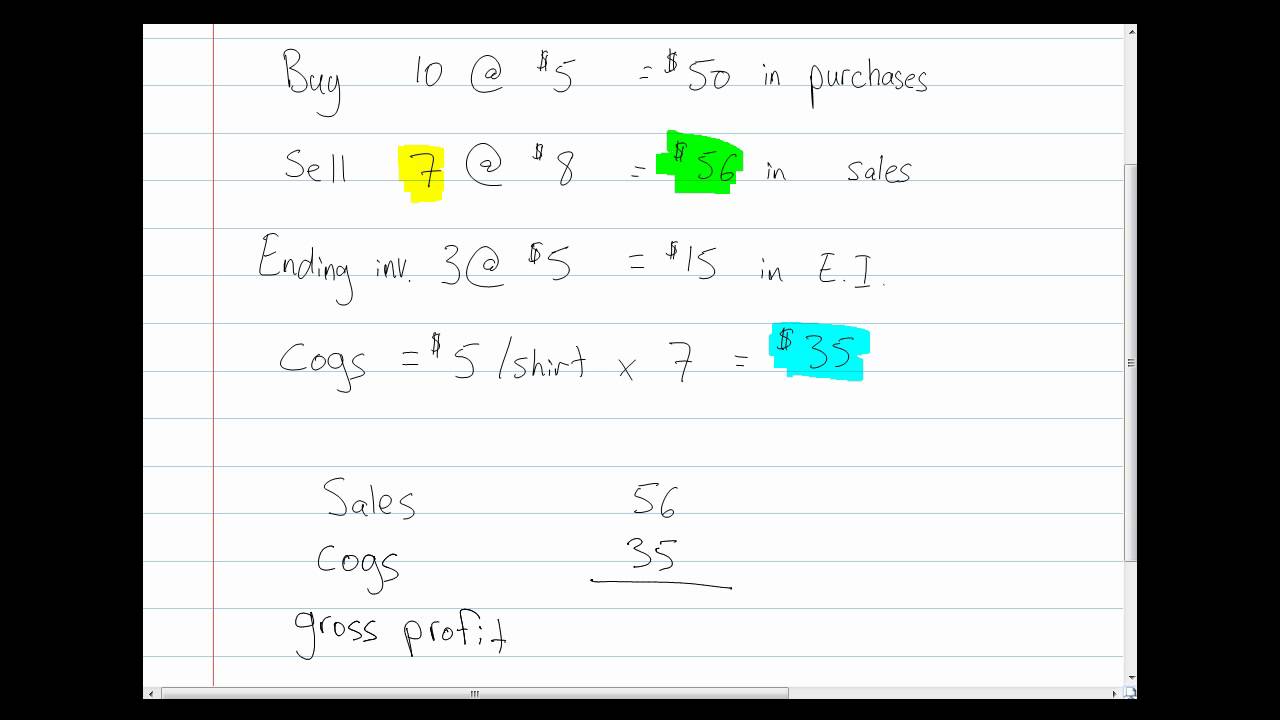 Buy 10 @ $5 = $50 in purchases
Sell 7 @ $8 = $56 in sales
Ending inv. 3 @ $5 = $15 in E.I.
Cogs = $5 /shirt x 7 = $35
Sales 56
Cogs 35
gross profit